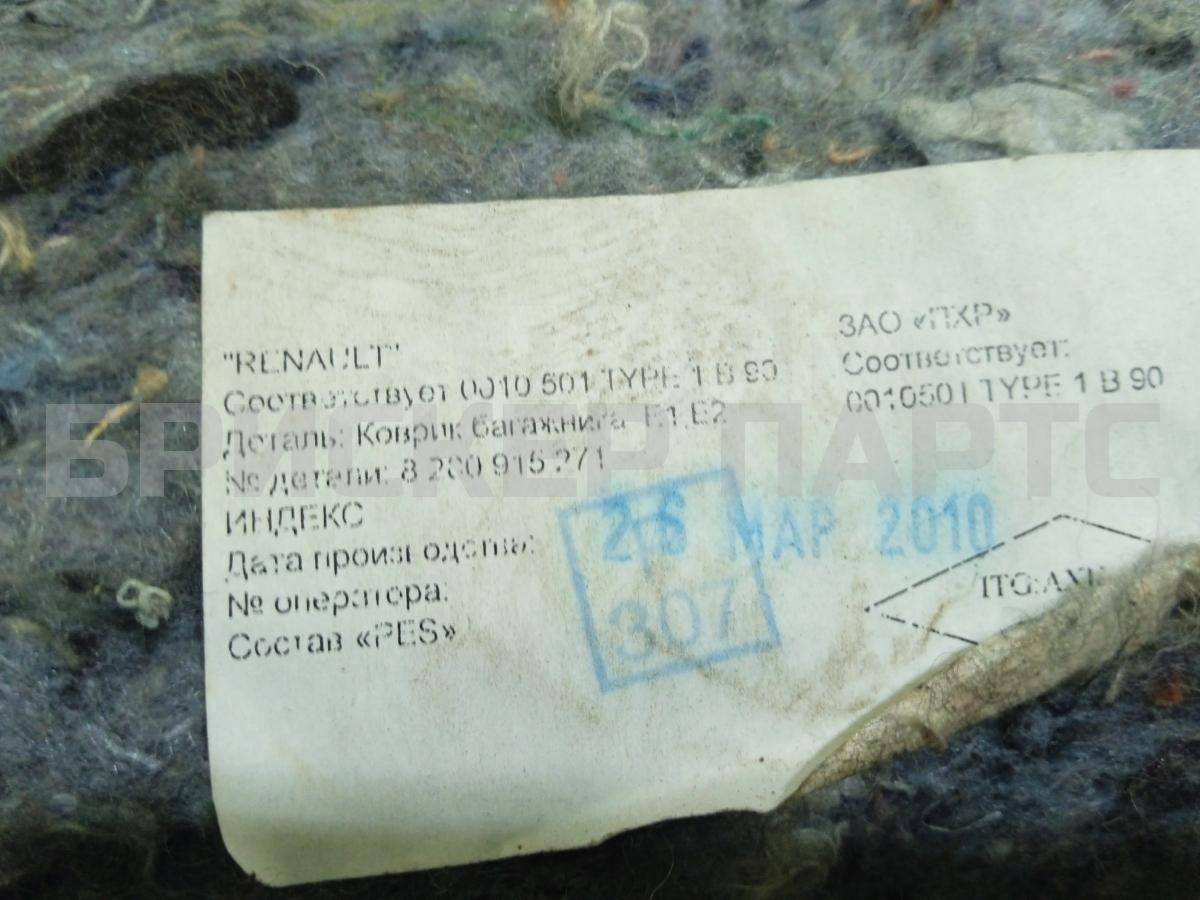 "RENAULT"
Соответствует 0010 501 TYPE 1 B 90
Деталь: Коврик багажника E1,E2
№ детали: 8 200 915 271
ИНДЕКС
Дата производства:
№ оператора:
Состав «PES»
ЗАО «ПХР»
Соответствует:
0010501 TYPE 1 B 90
26 МАР 2010
307
БРИСКЕР ПАРТС